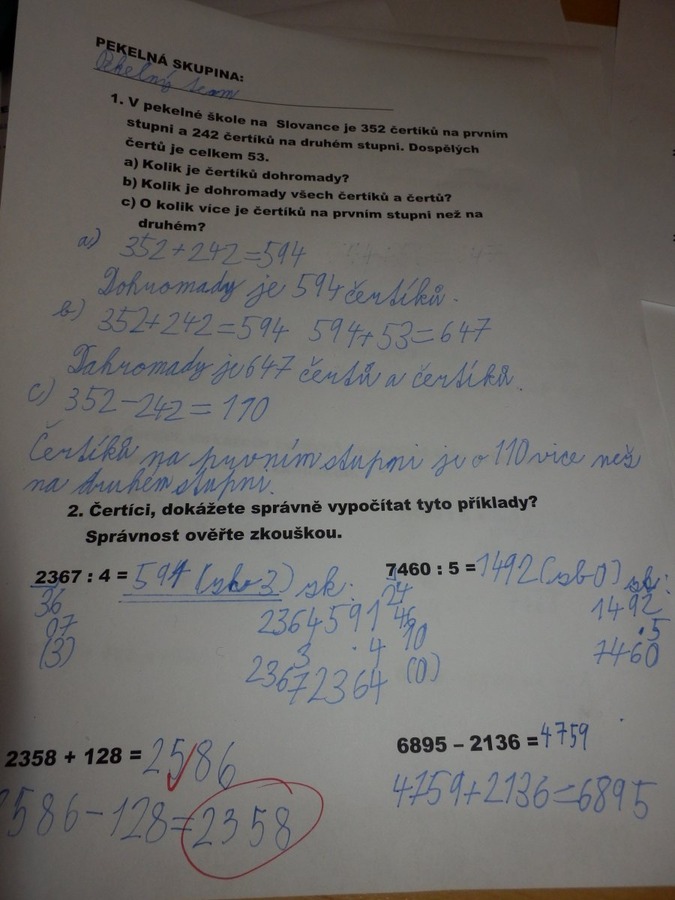 PEKELNÁ SKUPINA:
Pekelný team
1. V pekelné škole na Slovance je 352 čertíků na prvním
stupni a 242 čertíků na druhém stupni. Dospělých
čertů je celkem 53.
a) Kolik je čertíků dohromady?
b) Kolik je dohromady všech čertíků a čertů?
c) O kolik více je čertíků na prvním stupni než na
druhém?
a) 352+242=594
Dohromady je 594 čertíků.
b) 352+242=594 594+53=647
Dahromady je 647 čertů a čertíků.
c) 352-242=110
Čertíků na prvním stupni je o 110 vice než
na druhém stupni.
2. Čertíci, dokážete správně vypočítat tyto příklady?
Správnost ověřte zkouškou.
2367 : 4 = 591 (zb 3) zk:
36
07
(3)
2364 591
3 · 4
2367 2364
7460 : 5 = 1492 (zb 0) zk:
24
46
10
(0)
1492
· 5
7460
2358 + 128 = 2586
2586-128=2358
6895 – 2136 = 4759
4759+2136=6895